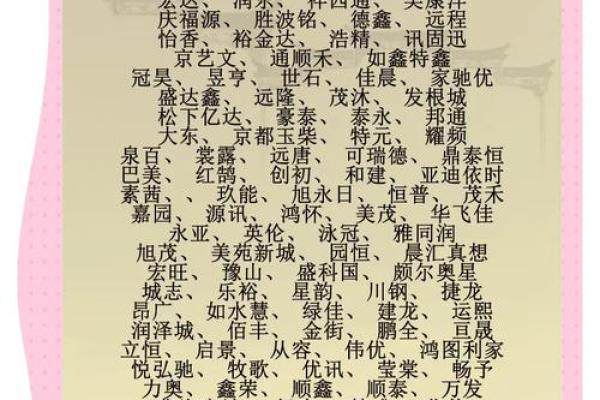 宏达、 润东、 祥四通、 昊康洋
庆福源、 胜波铭、 德鑫、 远程
怡香、 裕金达、 浩精、 讯固迅
京艺文、 通顺禾、 如鑫特鑫
冠昊、 昱亨、 世石、 佳晨、 家驰优
盛达鑫、 远隆、 茂沐、 发根城
松下亿达、 豪泰、 泰永、 邦通
大东、 京都玉柴、 特元、 耀频
泉百、 裳露、 远唐、 可瑞德、 鼎泰恒
巴美、 红鹄、 创初、 和建、 亚迪依时
素茜、、 玖能、 旭永日、 恒普、 茂禾
嘉园、 源讯、 鸿怀、 美茂、 华飞佳
永亚、 英伦、 泳冠、 雅同润
旭茂、 美苑新城、 园恒、 晨汇真想
宏旺、 豫山、 盛科国、 颇尔奥星
城志、 乐裕、 星韵、 川钢、 捷龙
昂广、 如水慧、 绿佳、 建龙、 运熙
润泽城、 佰丰、 金街、 鹏全、 亘晟
立恒、 启景、 从容、 伟优、 鸿图利家
悦弘驰、 牧歌、 优讯、 莹棠、 畅予
力奥、 鑫荣、 顺鑫、 顺泰、 万发